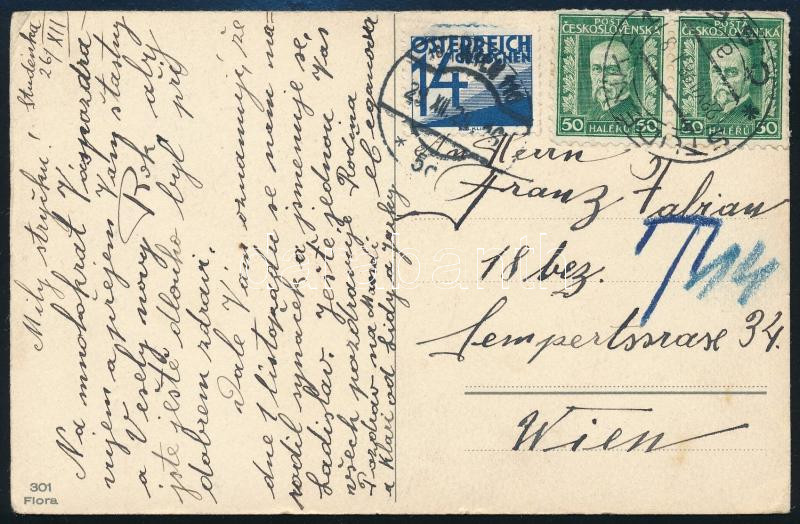 Studénka
26/XII
Milý strýčku!
Na mnohokrát Vás pozdra-
vujem a přejem Vám štastný
a Veselý nový Rok aby
jste ještě dlouho byl při
dobrém zdraví.
Dále Vám oznamuji, že
dne 1 listopadu se nám na-
rodil synáček a jmenuje se
Ladislav. Ještě jednou Vás
všech pozdravuje Rodina
Pozdrav na Mundi
a Kláři od Lidy a Jarky
301
Flora
ÖSTERREICH
14 GROSCHEN
POŠTA
ČESKOSLOVENSKÁ
50 HALÉŘŮ 50
POŠTA
ČESKOSLOVENSKÁ
50 HALÉŘŮ 50
Herrn
Franz Fabian
18 bez.
Sempertssrase 34.
Wien
T 14
darabanth